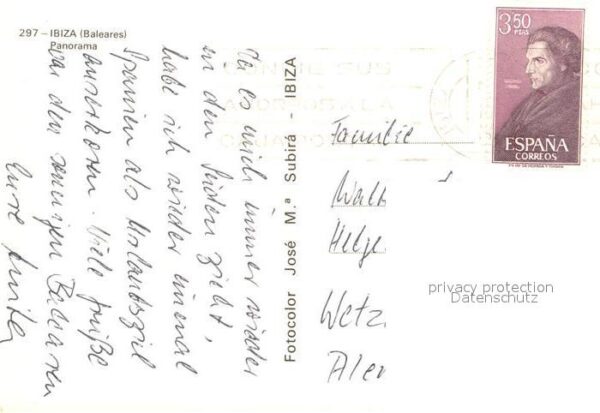 297 – IBIZA (Baleares)
Panorama
Da es mich immer wieder
in den Süden zieht,
habe ich wieder einmal
Spanien als Urlaubsziel
auserkoren. Viele Grüße
von den sonnigen Balearen
Eure Anita
Fotocolor José M.ª Subirá - IBIZA
Familie
Walt
Helge
Wetz
Aler
3,50
PTAS
ESPAÑA
CORREOS
privacy protection
Datenschutz